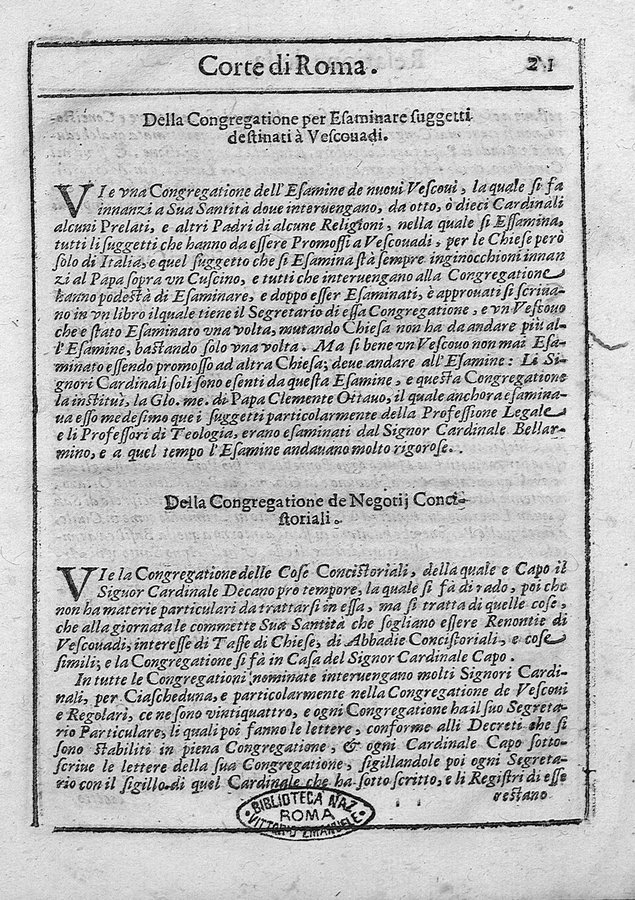 Corte di Roma. 21
Della Congregatione per Esaminare suggetti
destinati à Vescouadi.
VIe vna Congregatione dell'Esamine de nuoui Vescoui, la quale si fa
innanzi a Sua Santità doue interuengano, da otto, ò dieci Cardinali
alcuni Prelati, e altri Padri di alcune Religioni, nella quale si Essamina,
tutti li suggetti che hanno da essere Promossi a Vescouadi, per le Chiese però
solo di Italia, e quel suggetto che si Esamina stà sempre inginocchioni innan
zi al Papa sopra vn Cuscino, e tutti che interuengano alla Congregatione
hanno podestà di Esaminare, e doppo esser Esaminati, è approuati si scriua-
no in vn libro il quale tiene il Segretario di essa Congregatione, e vn Vescouo
che e stato Esaminato vna volta, mutando Chiesa non ha da andare più al-
l'Esamine, bastando solo vna volta. Ma si bene vn Vescouo non mai Esa-
minato essendo promosso ad altra Chiesa, deue andare all'Esamine: Li Si-
gnori Cardinali soli sono esenti da questa Esamine, e questa Congregatione
la instituì, la Glo. me. di Papa Clemente Ottauo, il quale anchora esamina-
ua esso medesimo que i suggetti particolarmente della Professione Legale
e li Professori di Teologia, erano esaminati dal Signor Cardinale Bellar-
mino, e a quel tempo l'Esamine andauano molto rigorose.
Della Congregatione de Negotij Conci-
storiali.
VIe la Congregatione delle Cose Concistoriali, della quale e Capo il
Signor Cardinale Decano pro tempore, la quale si fà di rado, poi che
non ha materie particulari da trattarsi in essa, ma si tratta di quelle cose,
che alla giornata le commette Sua Santità che sogliano essere Renontie di
Vescouadi, interesse di Tasse di Chiese, di Abbadie Concistoriali, e cose
simili; e la Congregatione si fà in Casa del Signor Cardinale Capo.
In tutte le Congregationi nominate interuengano molti Signori Cardi-
nali, per Ciascheduna, e particolarmente nella Congregatione de Vescoui
e Regolari, ce ne sono vintiquattro, e ogni Congregatione ha il suo Segreta-
rio Particulare, li quali poi fanno le lettere, conforme alli Decreti che si
sono stabiliti in piena Congregatione, & ogni Cardinale Capo sotto-
scriue le lettere della sua Congregatione, sigillandole poi ogni Segreta-
rio con il sigillo di quel Cardinale che ha sotto scritto, e li Registri di esse
restano
BIBLIOTECA NAZ
ROMA
VITTORIO EMANUELE